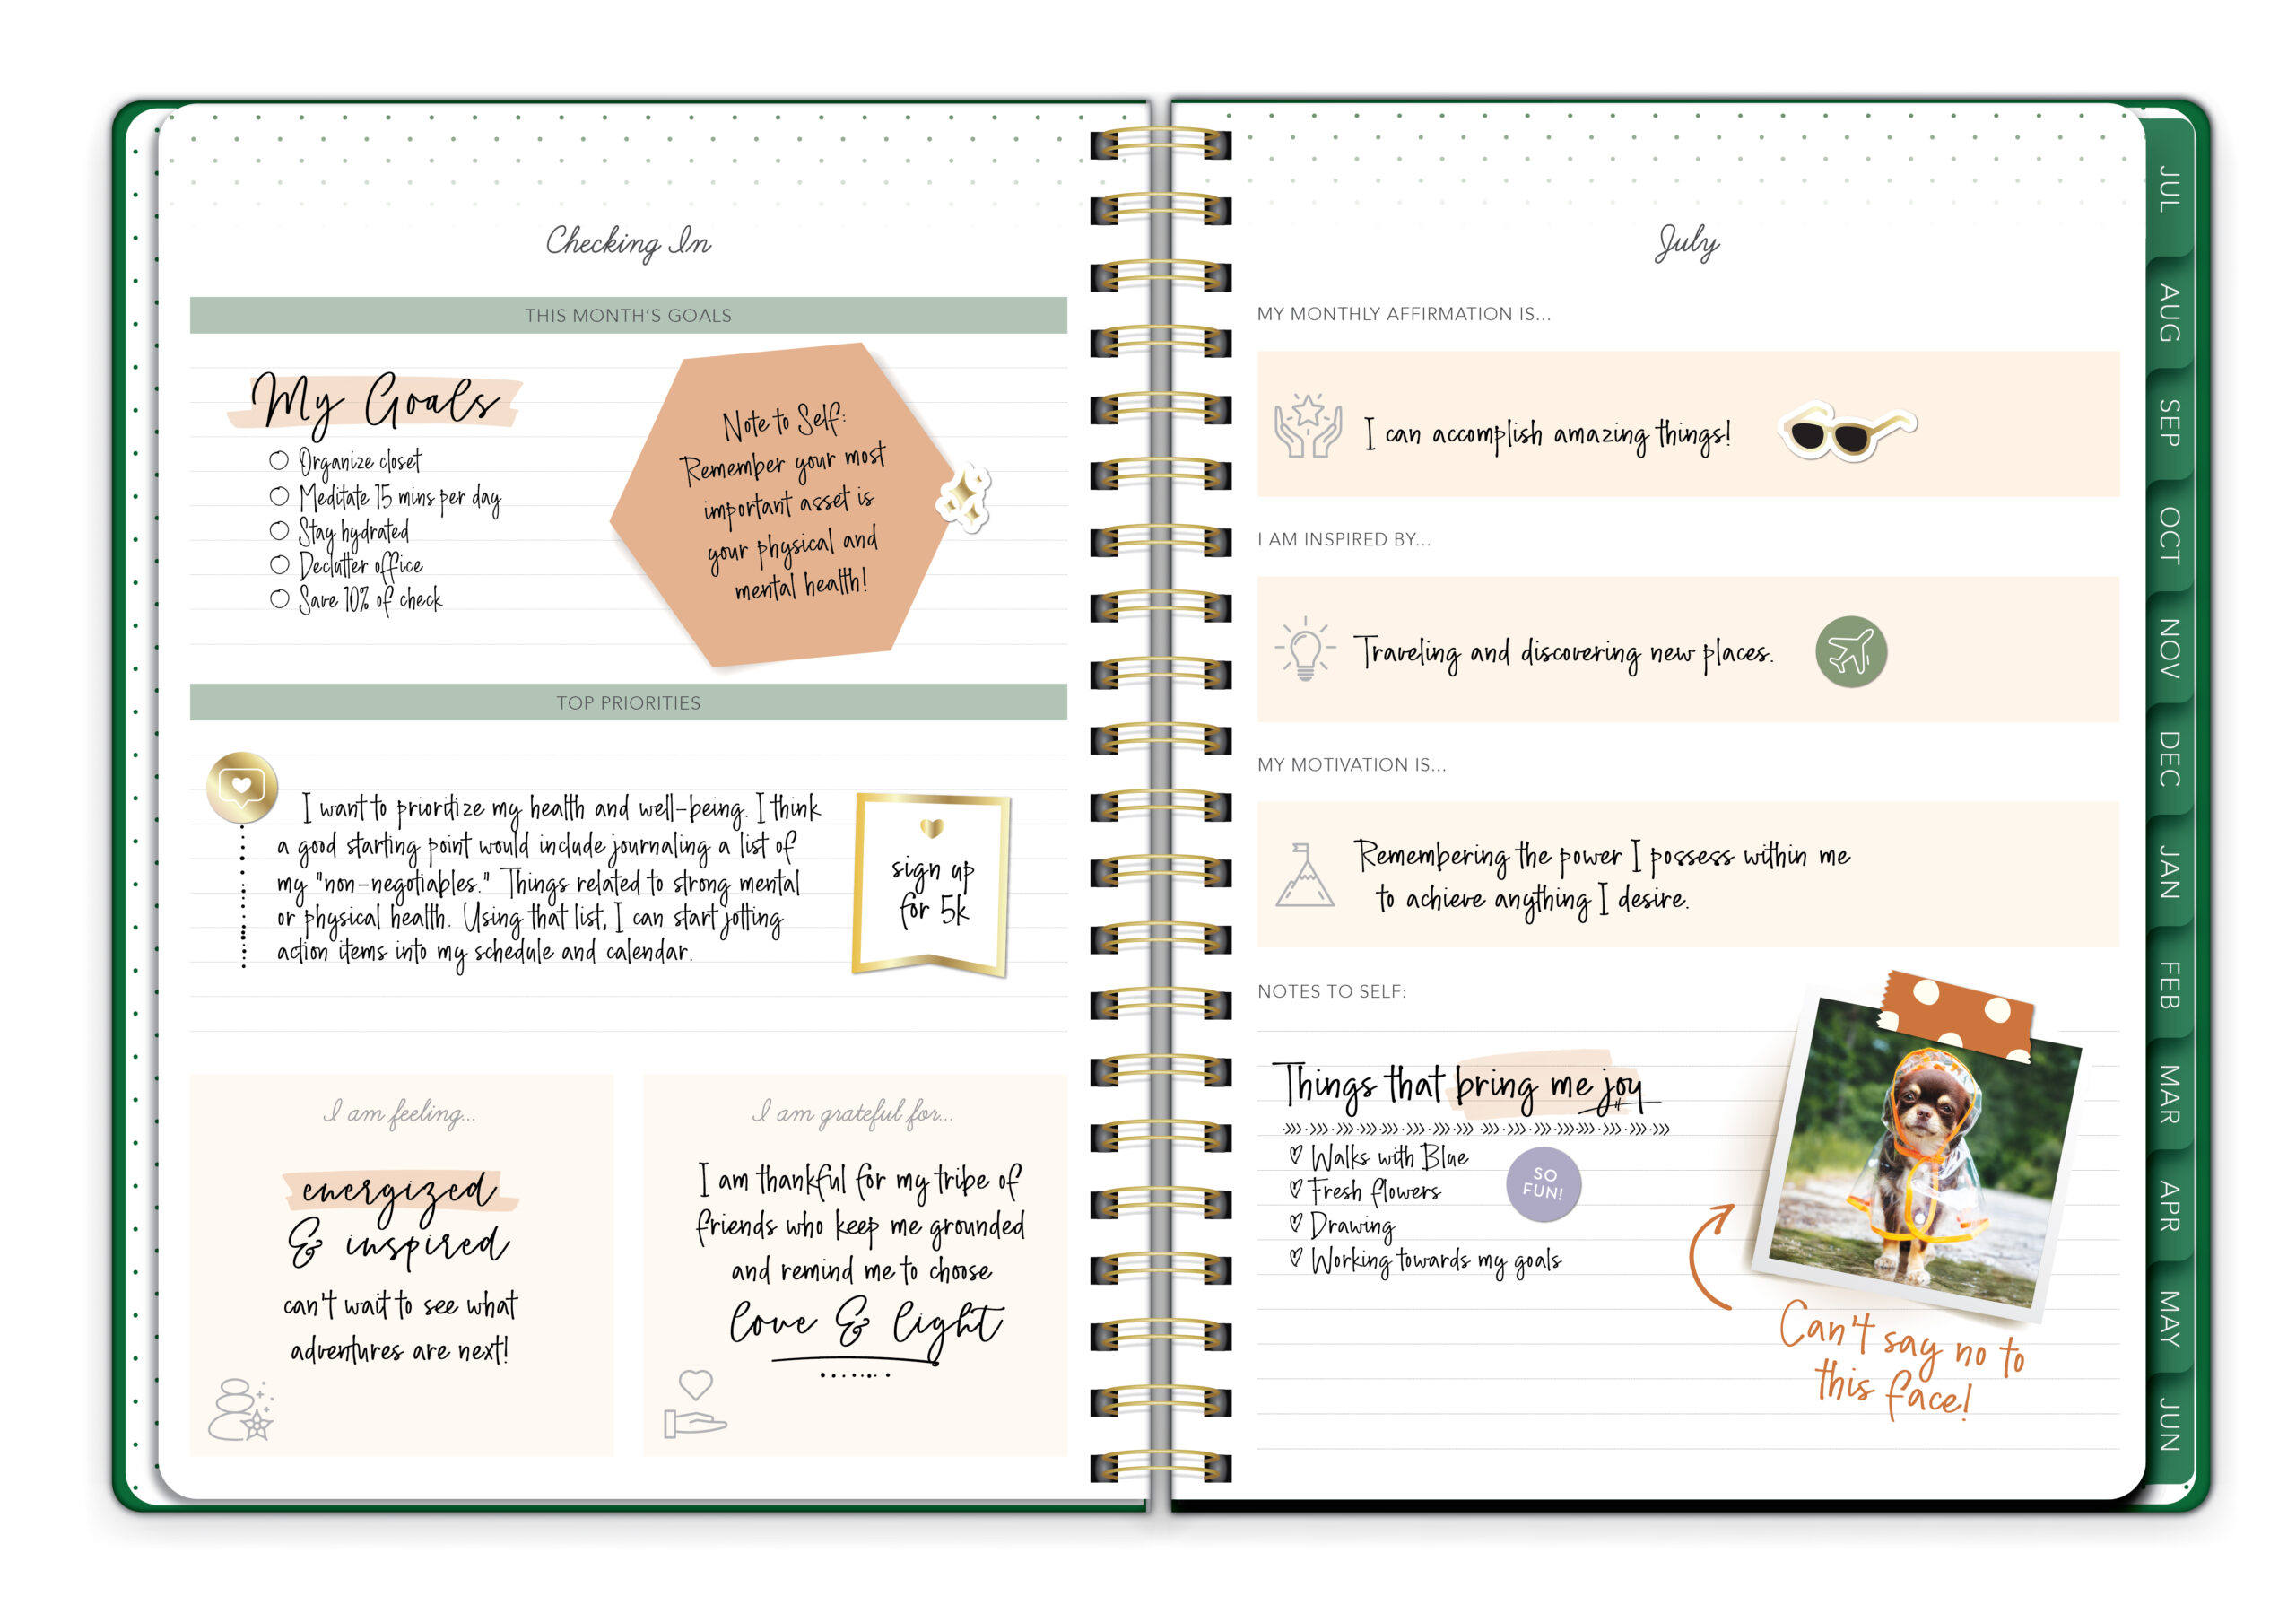 Checking In
THIS MONTH'S GOALS
My Goals
Organize closet
Meditate 15 mins per day
Stay hydrated
Declutter office
Save 10% of check
Note to Self:
Remember your most
important asset is
your physical and
mental health!
TOP PRIORITIES
I want to prioritize my health and well-being. I think
a good starting point would include journaling a list of
my "non-negotiables." Things related to strong mental
or physical health. Using that list, I can start jotting
action items into my schedule and calendar.
sign up
for 5k
I am feeling...
energized
& inspired
can't wait to see what
adventures are next!
I am grateful for...
I am thankful for my tribe of
friends who keep me grounded
and remind me to choose
love & light
July
MY MONTHLY AFFIRMATION IS...
I can accomplish amazing things!
I AM INSPIRED BY...
Traveling and discovering new places.
MY MOTIVATION IS...
Remembering the power I possess within me
to achieve anything I desire.
NOTES TO SELF:
Things that bring me joy
Walks with Blue
Fresh flowers
Drawing
Working towards my goals
SO
FUN!
Can't say no to
this face!
JUL
AUG
SEP
OCT
NOV
DEC
JAN
FEB
MAR
APR
MAY
JUN